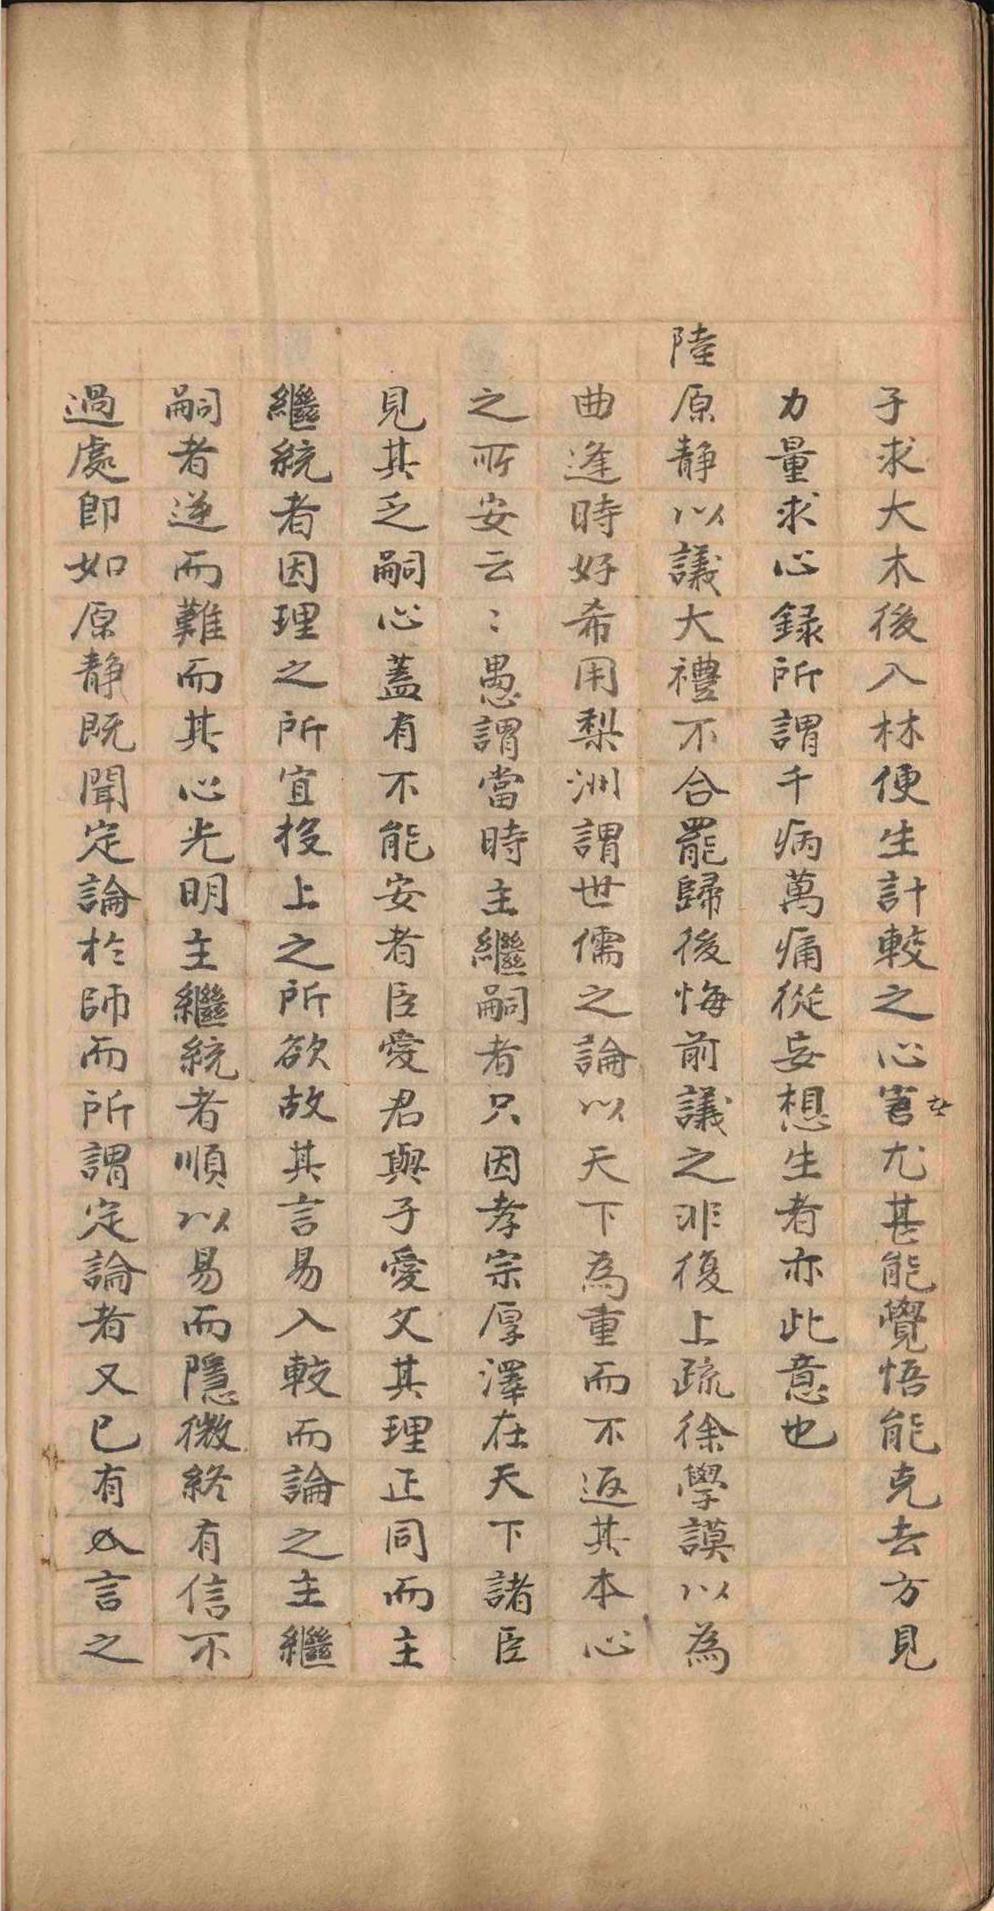 子求大木後入林便生計較之心害尤甚能覺悟能克去方見
力量求心録所謂千病萬痛從妄想生者亦此意也
陸原静以議大禮不合罷歸後悔前議之非復上疏徐學謨以為
曲逢時好希用梨洲謂世儒之論以天下為重而不返其本心
之所安云〻愚謂當時主繼嗣者只因孝宗厚澤在天下諸臣
見其乏嗣心蓋有不能安者臣愛君與子愛父其理正同而主
繼統者因理之所宜投上之所欲故其言易入較而論之主繼
嗣者逆而難而其心光明主繼統者順以易而隱微終有信不
過處即如原静既聞定論於師而所謂定論者又已有人言之